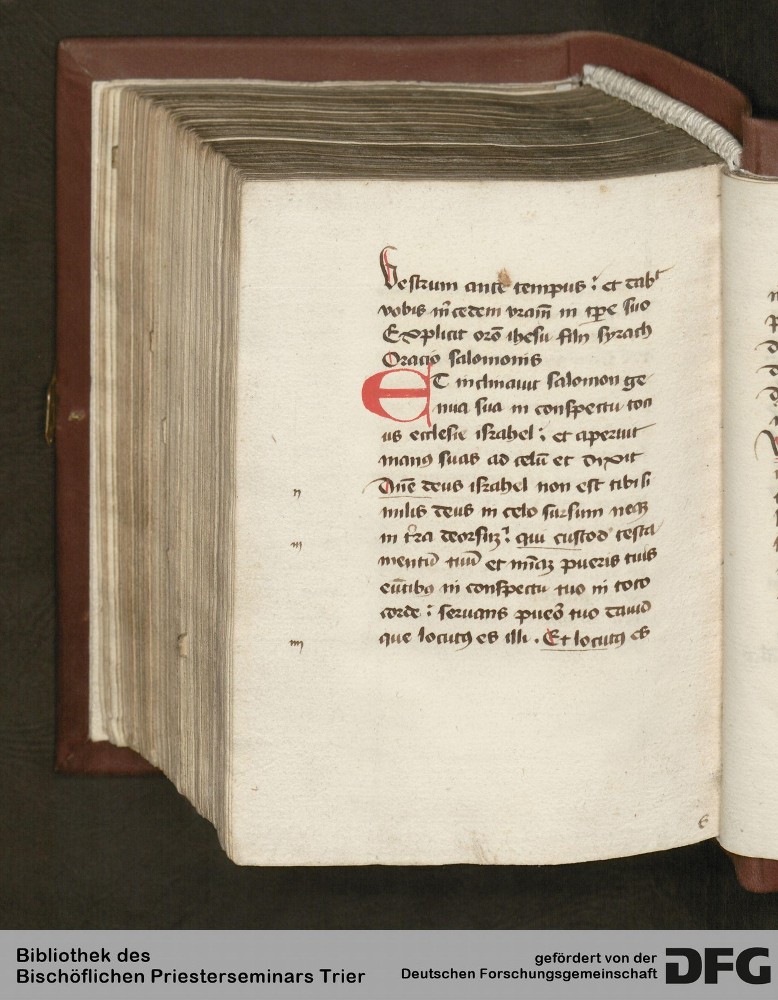 Vestrum ante tempus : et dabit
vobis m̄cedem vram̄ in tp̄e suo
Explicit oro̅ ihesu filii syrach
Oracio salomonis
ET inclinauit salomon ge
nua sua in conspectu toci
us ecclesie israhel : et aperuit
manꝯ suas ad celū et dixit
Dn̄e deus israhel non est tibi si
milis deus in celo sursum neqꝫ
in t̄ra deorsuꝫ : qui custod testa
mentū tuū et mīaꝫ pueris tuis
eūtibꝯ in conspectu tuo in toto
corde : seruans puero̅ tuo dauid
que locutꝯ es illi . Et locutꝯ es
n
m
6
Bibliothek des
Bischöflichen Priesterseminars Trier
gefördert von der
Deutschen Forschungsgemeinschaft
DFG